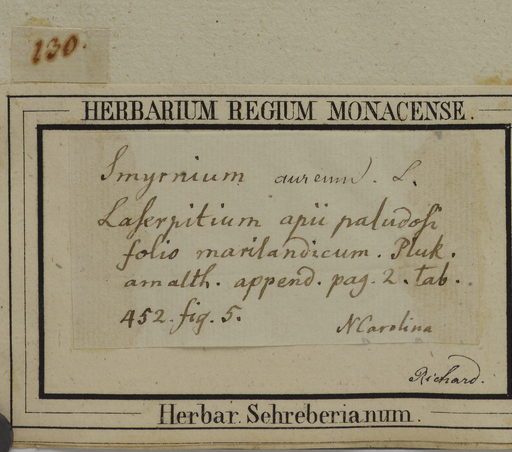 130.
HERBARIUM REGIUM MONACENSE.
Smyrnium aureum. L.
Laserpitium apii paludosi
folio marilandicum. Pluk.
amalth. append. pag. 2. tab.
452. fig. 5.
N Carolina
Richard.
Herbar. Schreberianum.